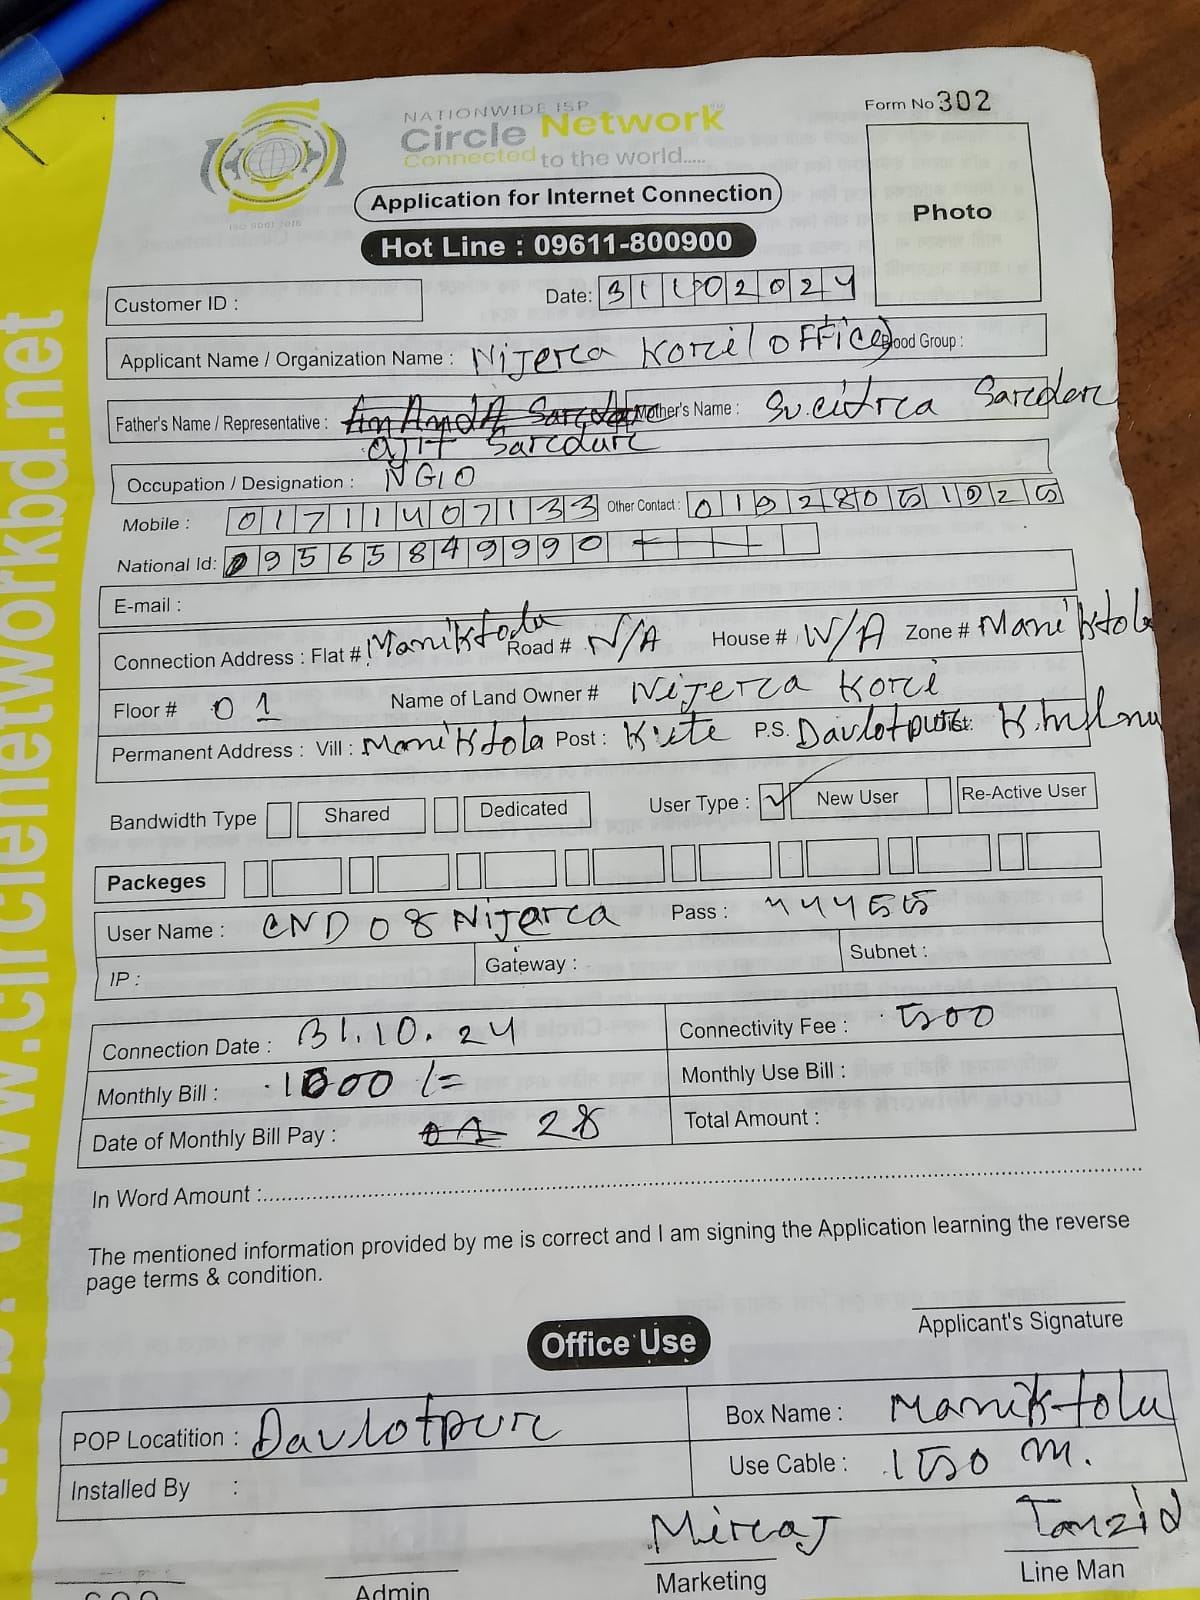 NATIONWIDE ISP
Form No 302
Circle Network
Connected to the world.....
ISO 9001:2015
Photo
Application for Internet Connection
Hot Line : 09611-800900
Customer ID :
Date: 31102024
Applicant Name / Organization Name : Nijerca Korcil office) Blood Group :
Father's Name / Representative : AnAndA Sarcdar Mother's Name : Sucitrca Sarcdarc
ajit Sarcdarc
Occupation / Designation : NGO
Mobile : 01711407133 Other Contact : 01928051025
National Id: 09565849990
E-mail :
Connection Address : Flat # Maniktola Road # N/A House # N/A Zone # Maniktola
Floor # 01 Name of Land Owner # Nijerca Korci
Permanent Address : Vill : Maniktola Post : P.S. Davlotpurc Dist:
Bandwidth Type Shared Dedicated User Type : ✓ New User Re-Active User
Packeges
User Name : CND08Nijerca Pass : 44455
IP : Gateway : Subnet :
Connection Date : 31.10.24 Connectivity Fee : 500
Monthly Bill : 1000/= Monthly Use Bill :
Date of Monthly Bill Pay : 01 28 Total Amount :
In Word Amount :
The mentioned information provided by me is correct and I am signing the Application learning the reverse
page terms & condition.
Applicant's Signature
Office Use
POP Locatition : Davlotpurc Box Name : Maniktola
Installed By : Use Cable : 150 m.
Mircaj Tanzid
Admin Marketing Line Man
www.circlenetworkbd.net